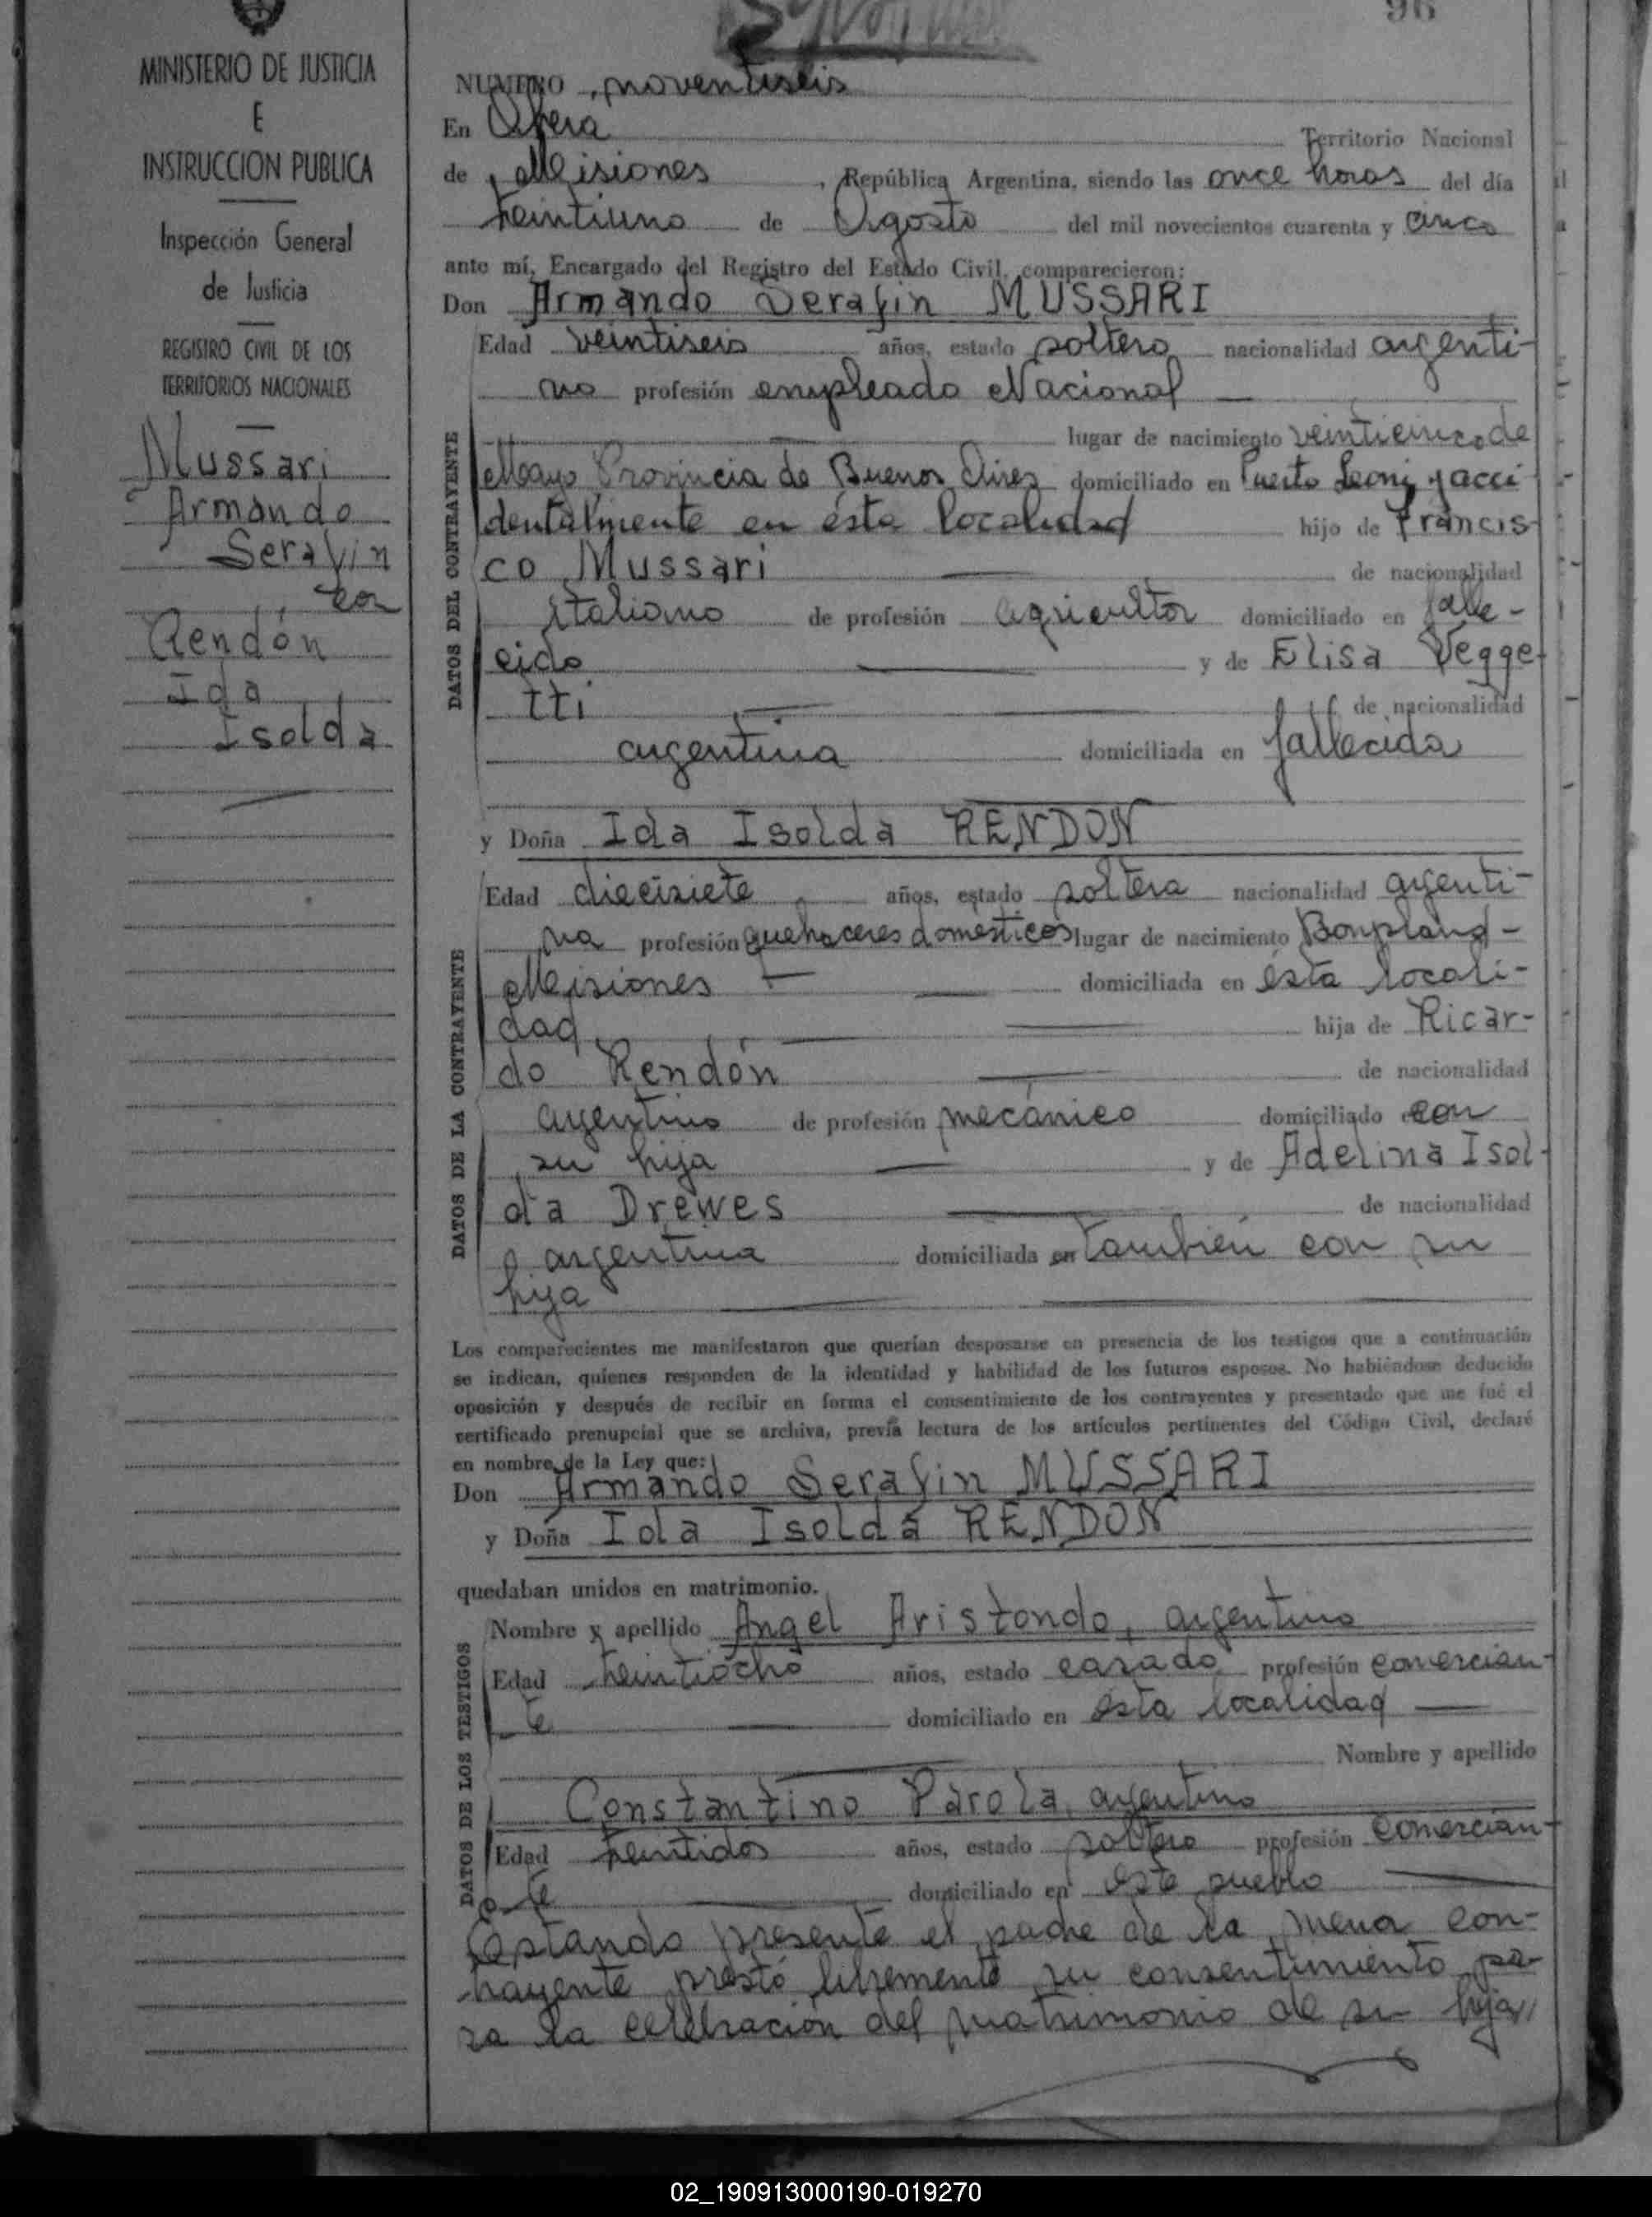 MINISTERIO DE JUSTICIA
E
INSTRUCCION PUBLICA
Inspección General
de Justicia
REGISTRO CIVIL DE LOS
TERRITORIOS NACIONALES
Mussari
Armando
Serafin
con
Rendón
Ida
Isolda
96
NUMERO noventiseis
En Obera Territorio Nacional
de Misiones, República Argentina, siendo las once horas del día
veintiuno de Agosto del mil novecientos cuarenta y cinco
ante mí, Encargado del Registro del Estado Civil, comparecieron:
Don Armando Serafin MUSSARI
DATOS DEL CONTRAYENTE
Edad veintiseis años, estado soltero nacionalidad argenti-
no profesión empleado Nacional
lugar de nacimiento veinticinco de
Mayo Provincia de Buenos Aires domiciliado en Puerto Leoni y acci
dentalmente en ésta localidad hijo de Francis-
co Mussari de nacionalidad
italiano de profesión agricultor domiciliado en falle-
cido y de Elisa Vegge-
tti de nacionalidad
argentina domiciliada en fallecida
y Doña Ida Isolda RENDON
DATOS DE LA CONTRAYENTE
Edad diecisiete años, estado soltera nacionalidad argenti-
na profesión quehaceres domésticos lugar de nacimiento Bonpland-
Misiones domiciliada en ésta locali-
dad hija de Ricar-
do Rendón de nacionalidad
argentino de profesión mecánico domiciliado con
su hija y de Adelina Isol-
da Drewes de nacionalidad
argentina domiciliada en también con su
hija
Los comparecientes me manifestaron que querían desposarse en presencia de los testigos que a continuación
se indican, quienes responden de la identidad y habilidad de los futuros esposos. No habiéndose deducido
oposición y después de recibir en forma el consentimiento de los contrayentes y presentado que me fué el
certificado prenupcial que se archiva, previa lectura de los artículos pertinentes del Código Civil, declaré
en nombre de la Ley que:
Don Armando Serafin MUSSARI
y Doña Ida Isolda RENDON
quedaban unidos en matrimonio.
DATOS DE LOS TESTIGOS
Nombre y apellido Angel Aristondo, argentino
Edad veintiocho años, estado casado profesión comercian-
te domiciliado en ésta localidad
Nombre y apellido
Constantino Parola, argentino
Edad veintidos años, estado soltero profesión comercian-
te domiciliado en este pueblo
Estando presente el padre de la menor con-
trayente prestó libremente su consentimiento pa-
ra la celebración del matrimonio de su hija//
02_190913000190-019270